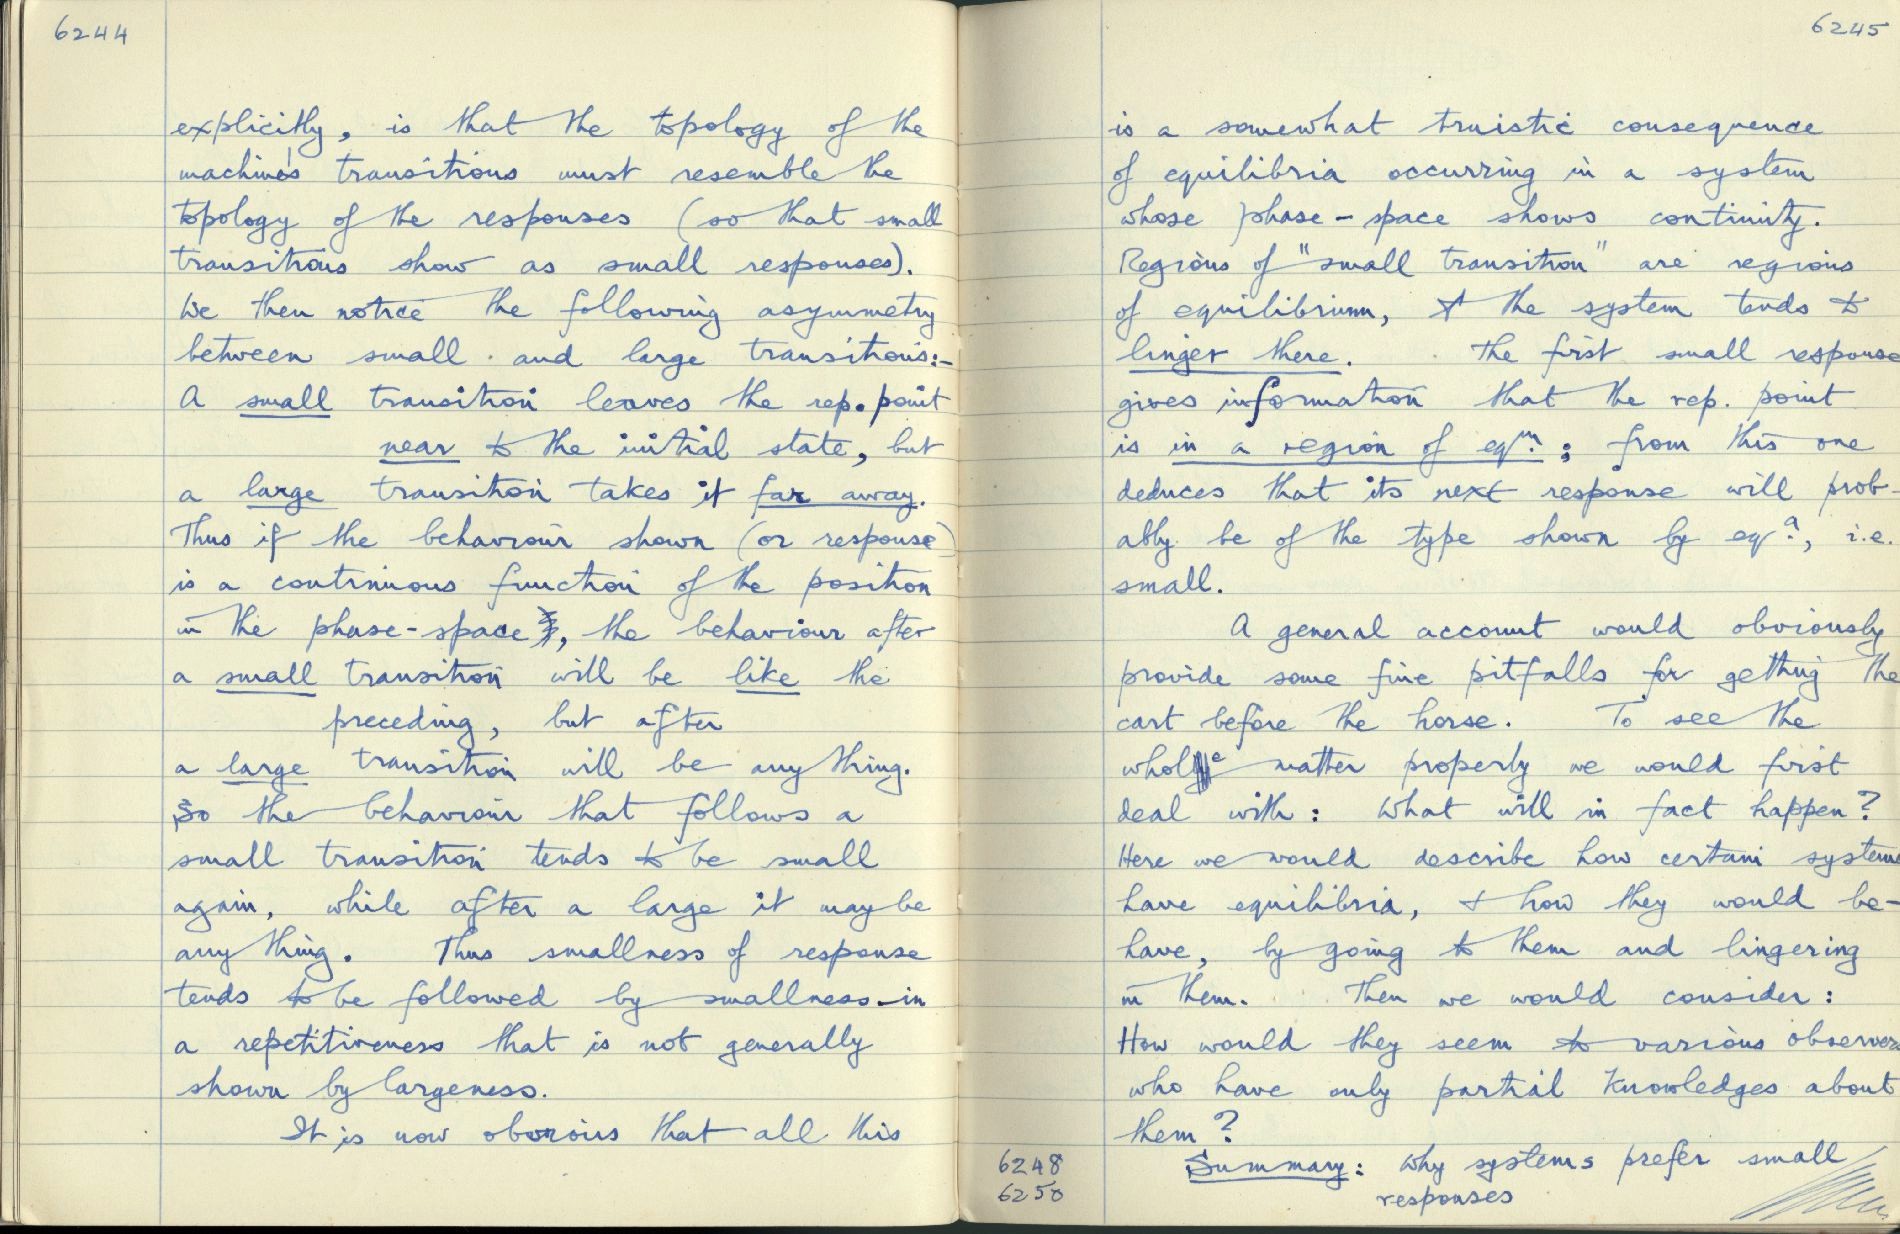 6244
explicitly, is that the topology of the
machine's transitions must resemble the
topology of the responses (so that small
transitions show as small responses).
We then notice the following asymmetry
between small and large transitions:-
A small transition leaves the rep. point
near to the initial state, but
a large transition takes it far away.
Thus if the behaviour shown (or response)
is a continuous function of the position
in the phase-space, the behaviour after
a small transition will be like the
preceding, but after
a large transition will be any thing.
So the behaviour that follows a
small transition tends to be small
again, while after a large it may be
any thing. Thus smallness of response
tends to be followed by smallness-in
a repetitiveness that is not generally
shown by largeness.
It is now obvious that all this
6245
is a somewhat truistic consequence
of equilibria occurring in a system
whose phase-space shows continuity.
Regions of "small transition" are regions
of equilibrium, & the system tends to
linger there. The first small response
gives information that the rep. point
is in a region of eqm.; from this one
deduces that its next response will prob-
ably be of the type shown by eqa., i.e.
small.
A general account would obviously
provide some fine pitfalls for getting the
cart before the horse. To see the
whole matter properly we would first
deal with: What will in fact happen?
Here we would describe how certain systems
have equilibria, & how they would be-
have, by going to them and lingering
in them. Then we would consider:
How would they seem to various observers
who have only partial knowledges about
them?
Summary: Why systems prefer small
responses
6248
6250